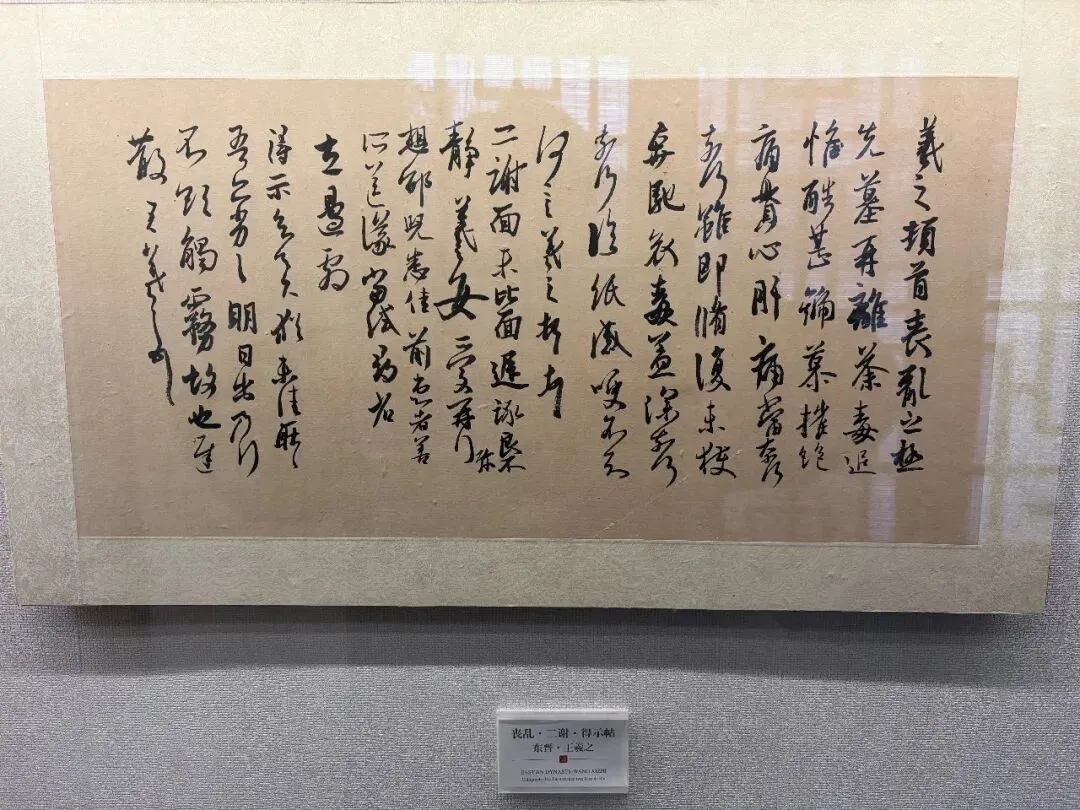 羲之頓首喪亂之極
先墓再離荼毒追
惟酷甚號慕摧絕
痛貫心肝痛當柰何
柰何雖即脩復未獲
奔馳哀毒益深柰何
柰何臨紙感哽不知
何言羲之頓首頓首
二謝面未比面遲詠良不
靜羲之女愛再拜
想邵兒悉佳前患者善
所送議當試尋省
左邊劇
得示知足下猶未佳耿耿
吾亦劣劣明日出乃行
不欲觸霧故也遲
散王羲之頓首
丧乱·二谢·得示帖
东晋·王羲之